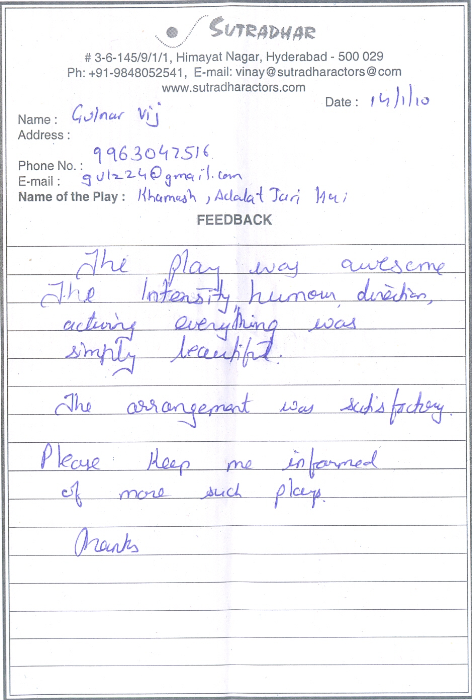 SUTRADHAR
# 3-6-145/9/1/1, Himayat Nagar, Hyderabad - 500 029
Ph: +91-9848052541, E-mail: vinay@sutradharactors@com
www.sutradharactors.com
Date : 14/1/10
Name : Gulnar Vij
Address :
Phone No. : 9963047516
E-mail : gulz24@gmail.com
Name of the Play : Khamosh, Adalat Jari Hai
FEEDBACK
The play was awesome
The Intensity, humour, direction,
acting everything was
simply beautiful.
The arrangement was satisfactory.
Please keep me informed
of more such plays.
Thanks